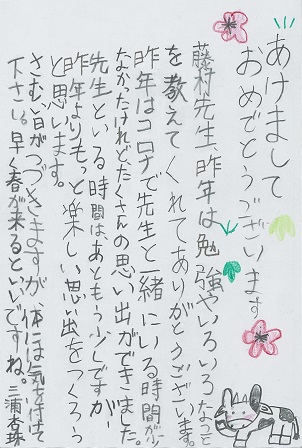 あけまして
おめでとうございます
藤村先生、昨年は勉強やいろいろなこと
を教えてくれてありがとうございます。
昨年はコロナで先生と一緒にいる時間が少
なかったけれど、たくさんの思い出ができました。
先生といる時間は、あともう少しですが
昨年よりもっと楽しい思い出をつくろう
と思います。
さむい日がつづきますが、体には気を付けて
下さい。早く春が来るといいですね。三浦杏珠